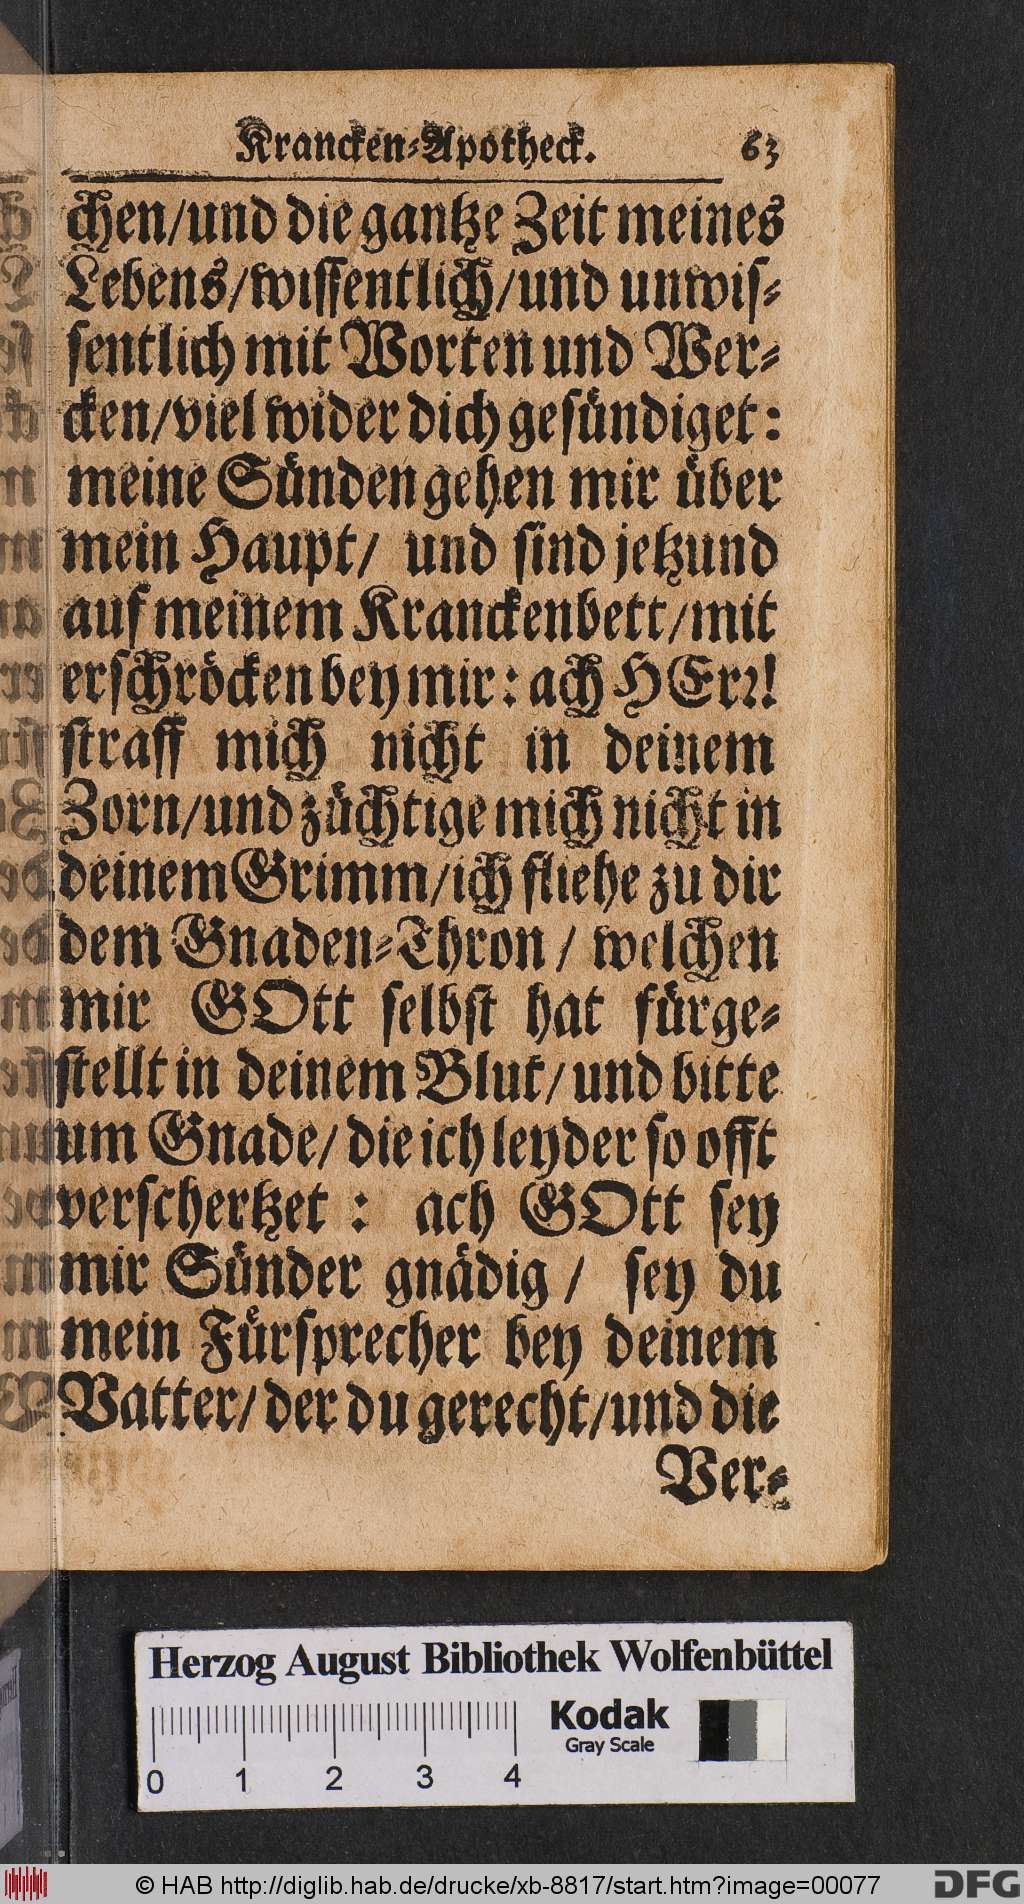 Krancken-Apotheck. 63
chen/und die gantze Zeit meines
Lebens/wissentlich/und unwis-
sentlich mit Worten und Wer-
cken/viel wider dich gesündiget:
meine Sünden gehen mir über
mein Haupt/ und sind jetzund
auf meinem Kranckenbett/mit
erschröcken bey mir: ach HErr!
straff mich nicht in deinem
Zorn/und züchtige mich nicht in
deinem Grimm/ich fliehe zu dir
dem Gnaden-Thron/ welchen
mir GOtt selbst hat fürge-
stellt in deinem Blut/und bitte
um Gnade/die ich leyder so offt
verschertzet: ach GOtt sey
mir Sünder gnädig/ sey du
mein Fürsprecher bey deinem
Vatter/der du gerecht/und die
Ver-
Herzog August Bibliothek Wolfenbüttel
Kodak
Gray Scale
0 1 2 3 4
© HAB http://diglib.hab.de/drucke/xb-8817/start.htm?image=00077
DFG